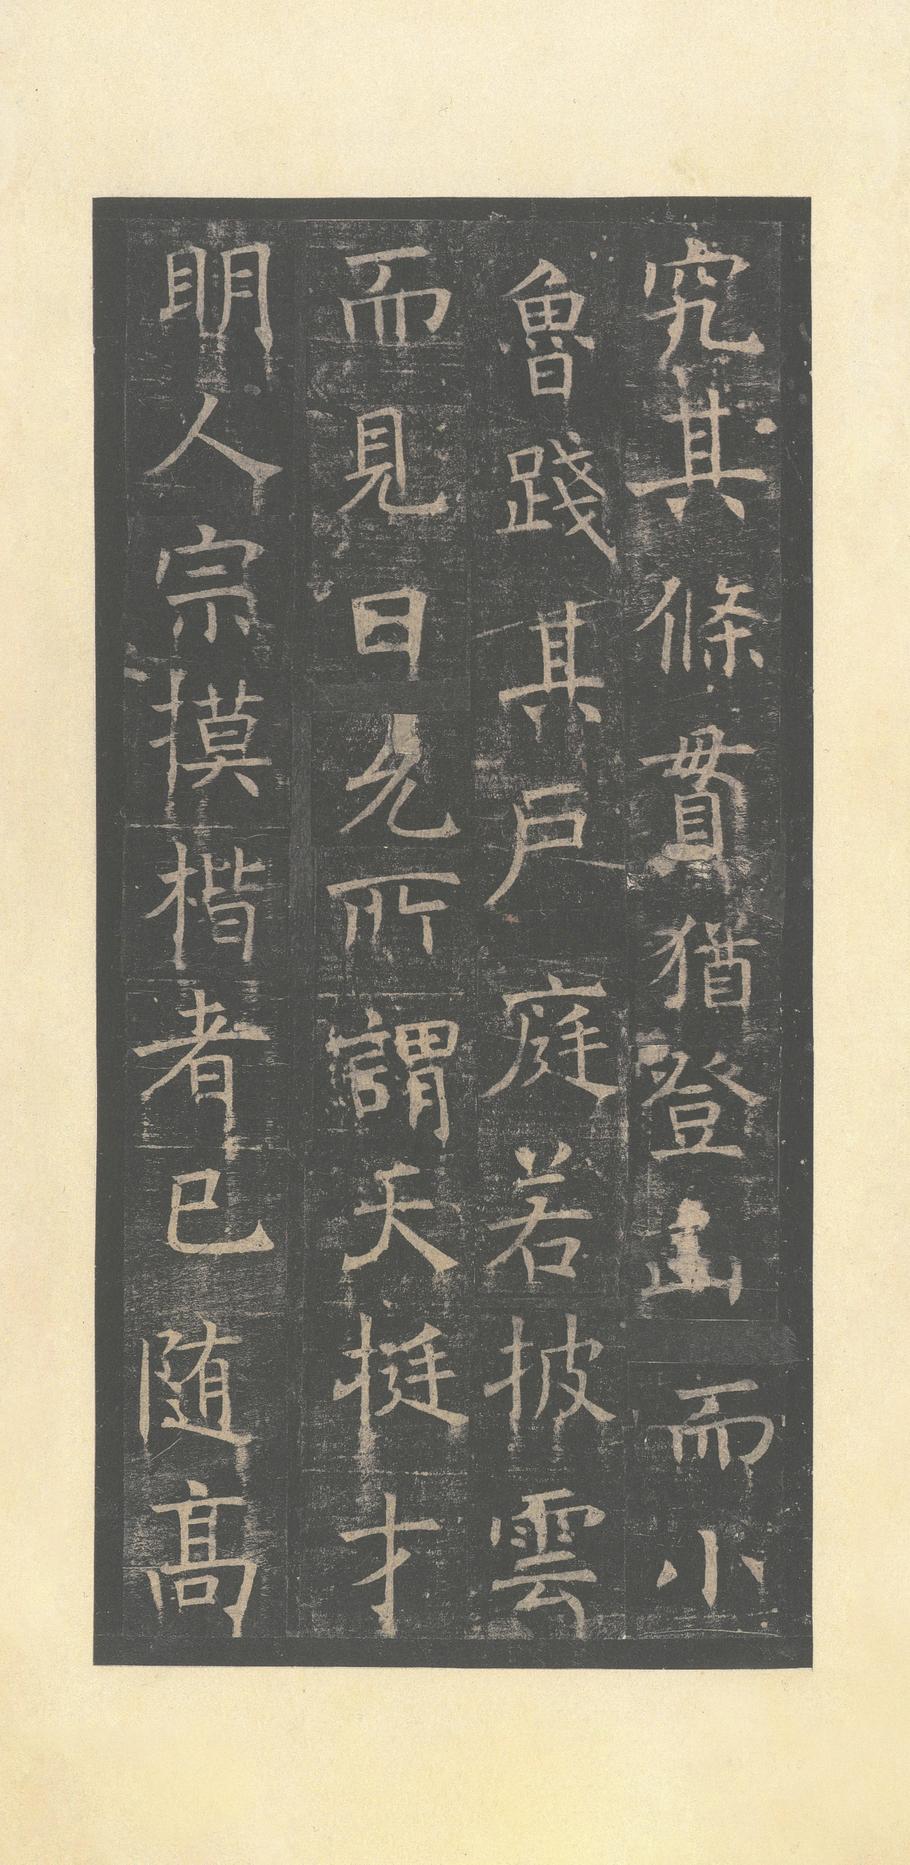 究其條貫猶登山而小
魯踐其戶庭若披雲
而見日允所謂天挺才
明人宗摸楷者已随高